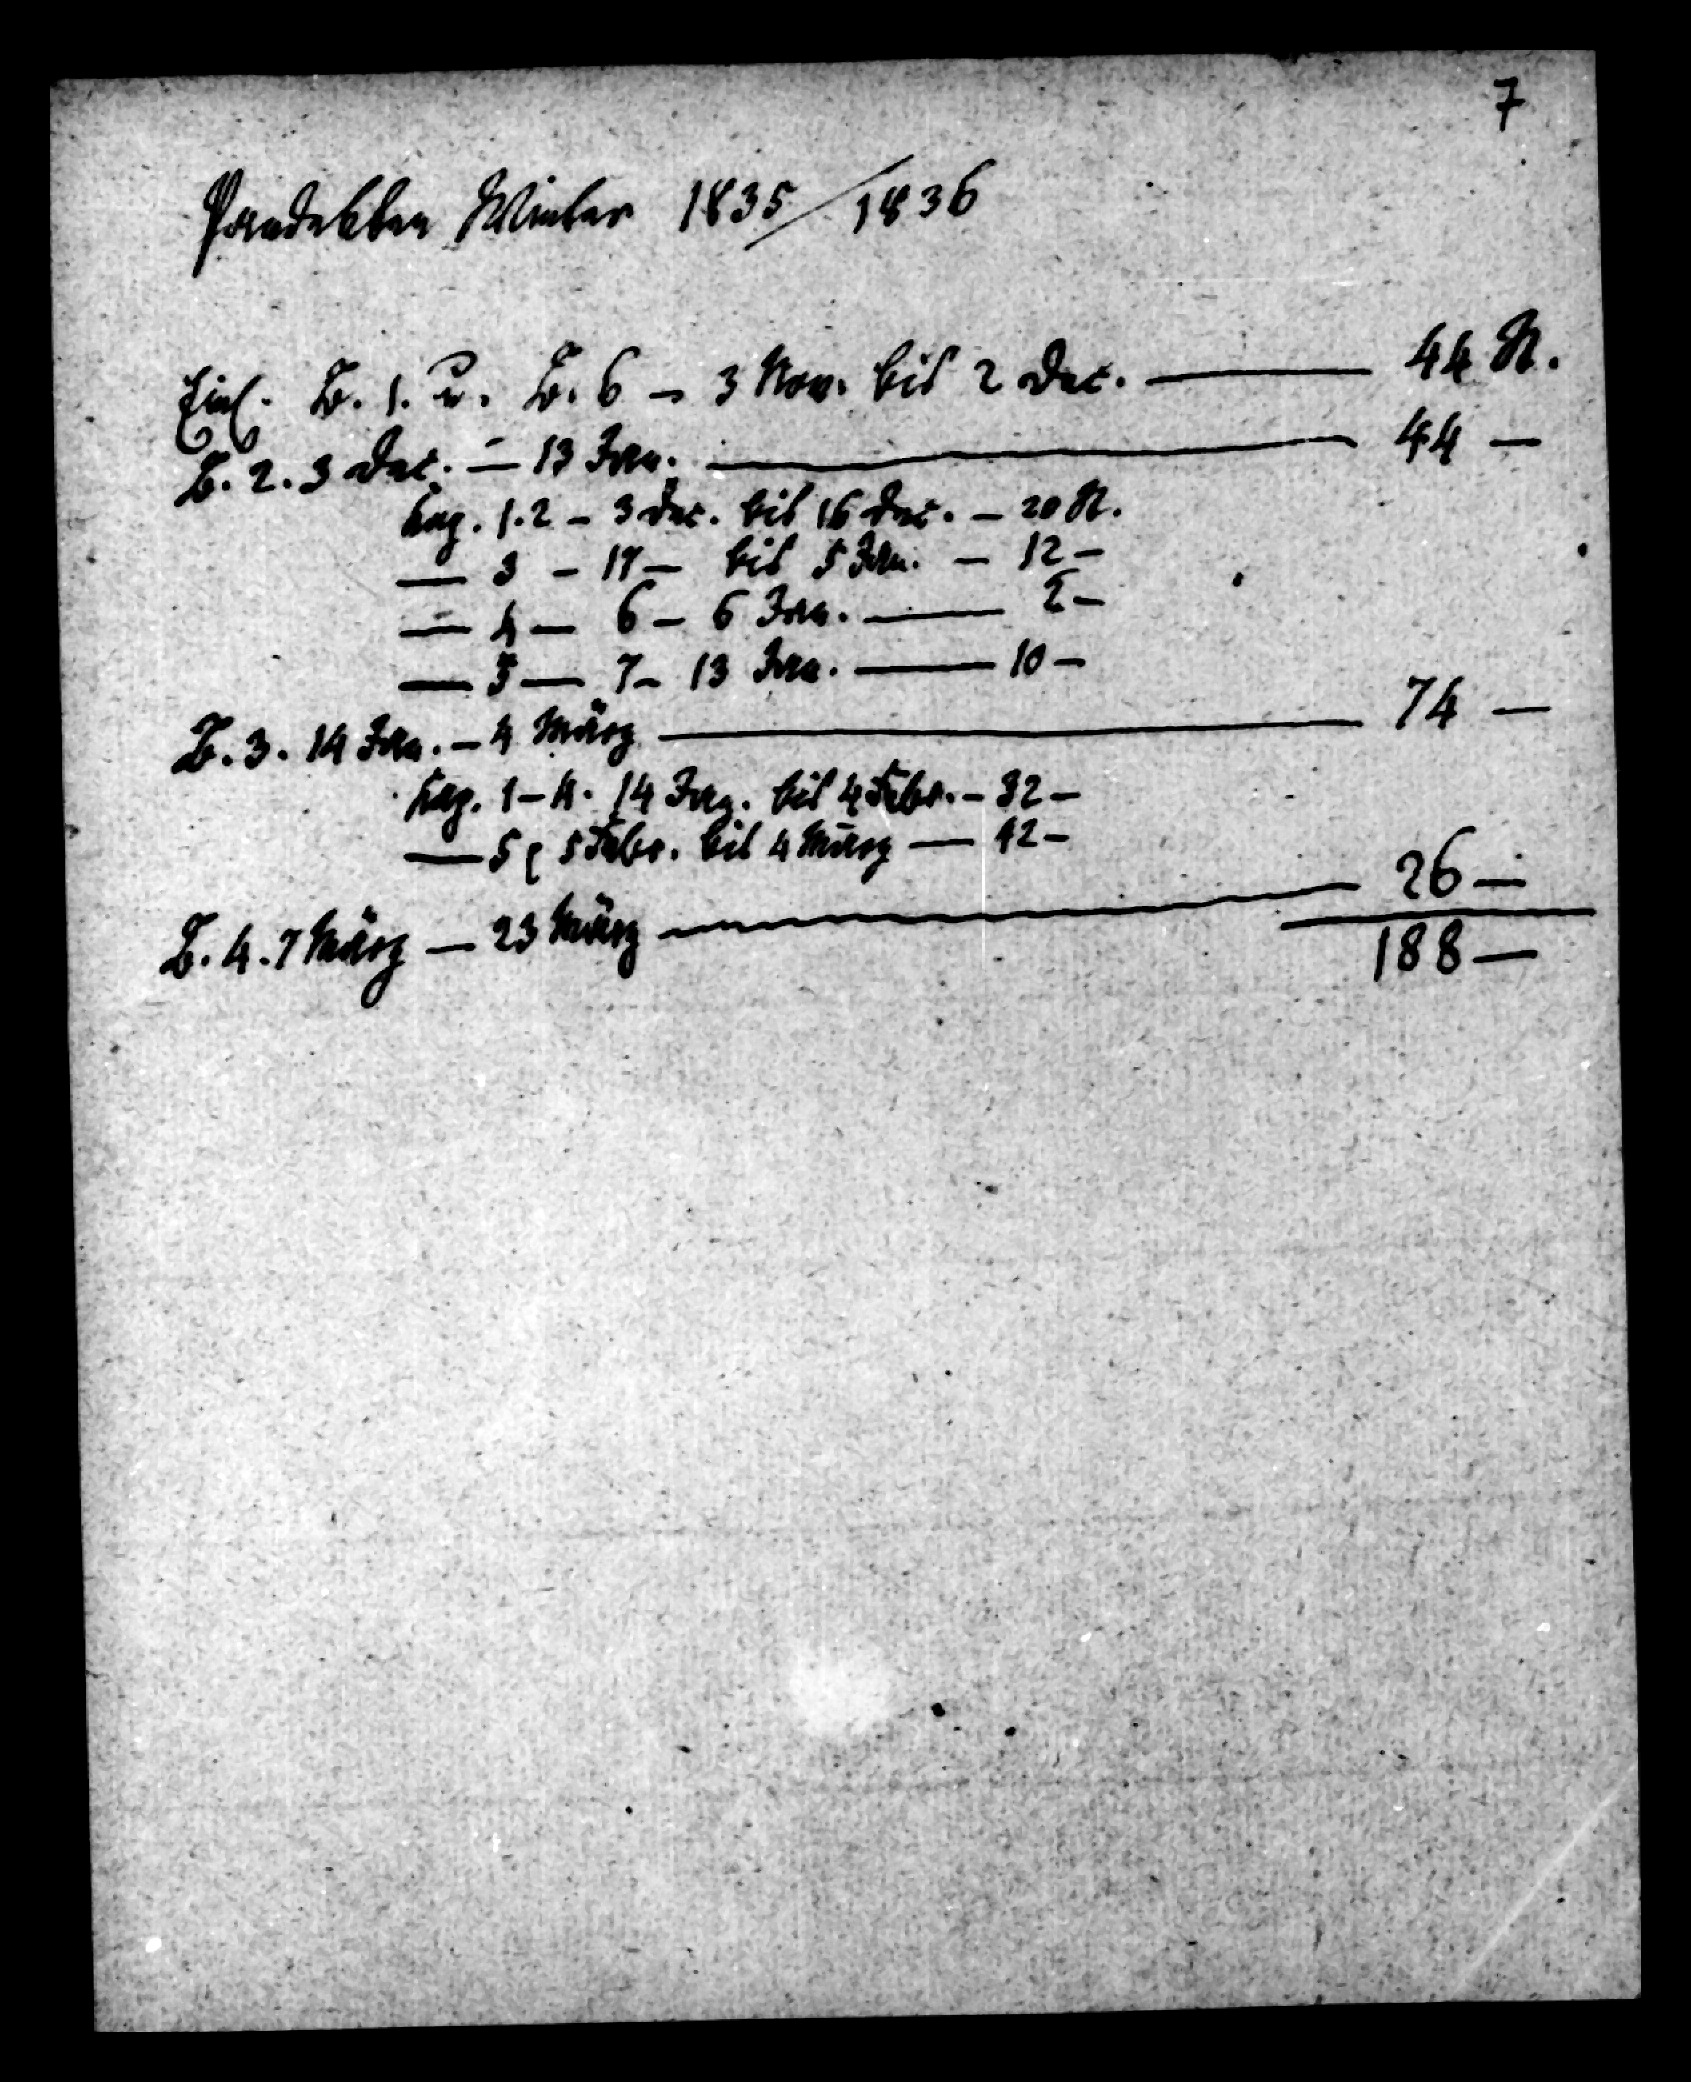 7
Pandekten Winter 1835/1836
Einl. B. 1. u. B. 6 – 3 Nov. bis 2 Dec. — 44 St.
B. 2. 3 Dec. — 13 Jan. — 44 —
Kap. 1.2 – 3 Dec. bis 16 Dec. – 20 St.
— 3 – 17 – bis 5 Jan. – 12 –
— 4 — 6 – 6 Jan. — 2 –
— 5 — 7 – 13 Jan. — 10 –
B. 3. 14 Jan. – 4 März — 74 —
Kap. 1–4. 14 Jan. bis 4 Febr. – 32 –
— 5 5 Febr. bis 4 März — 42 –
B. 4. 7 März — 23 März — 26 —
188 —